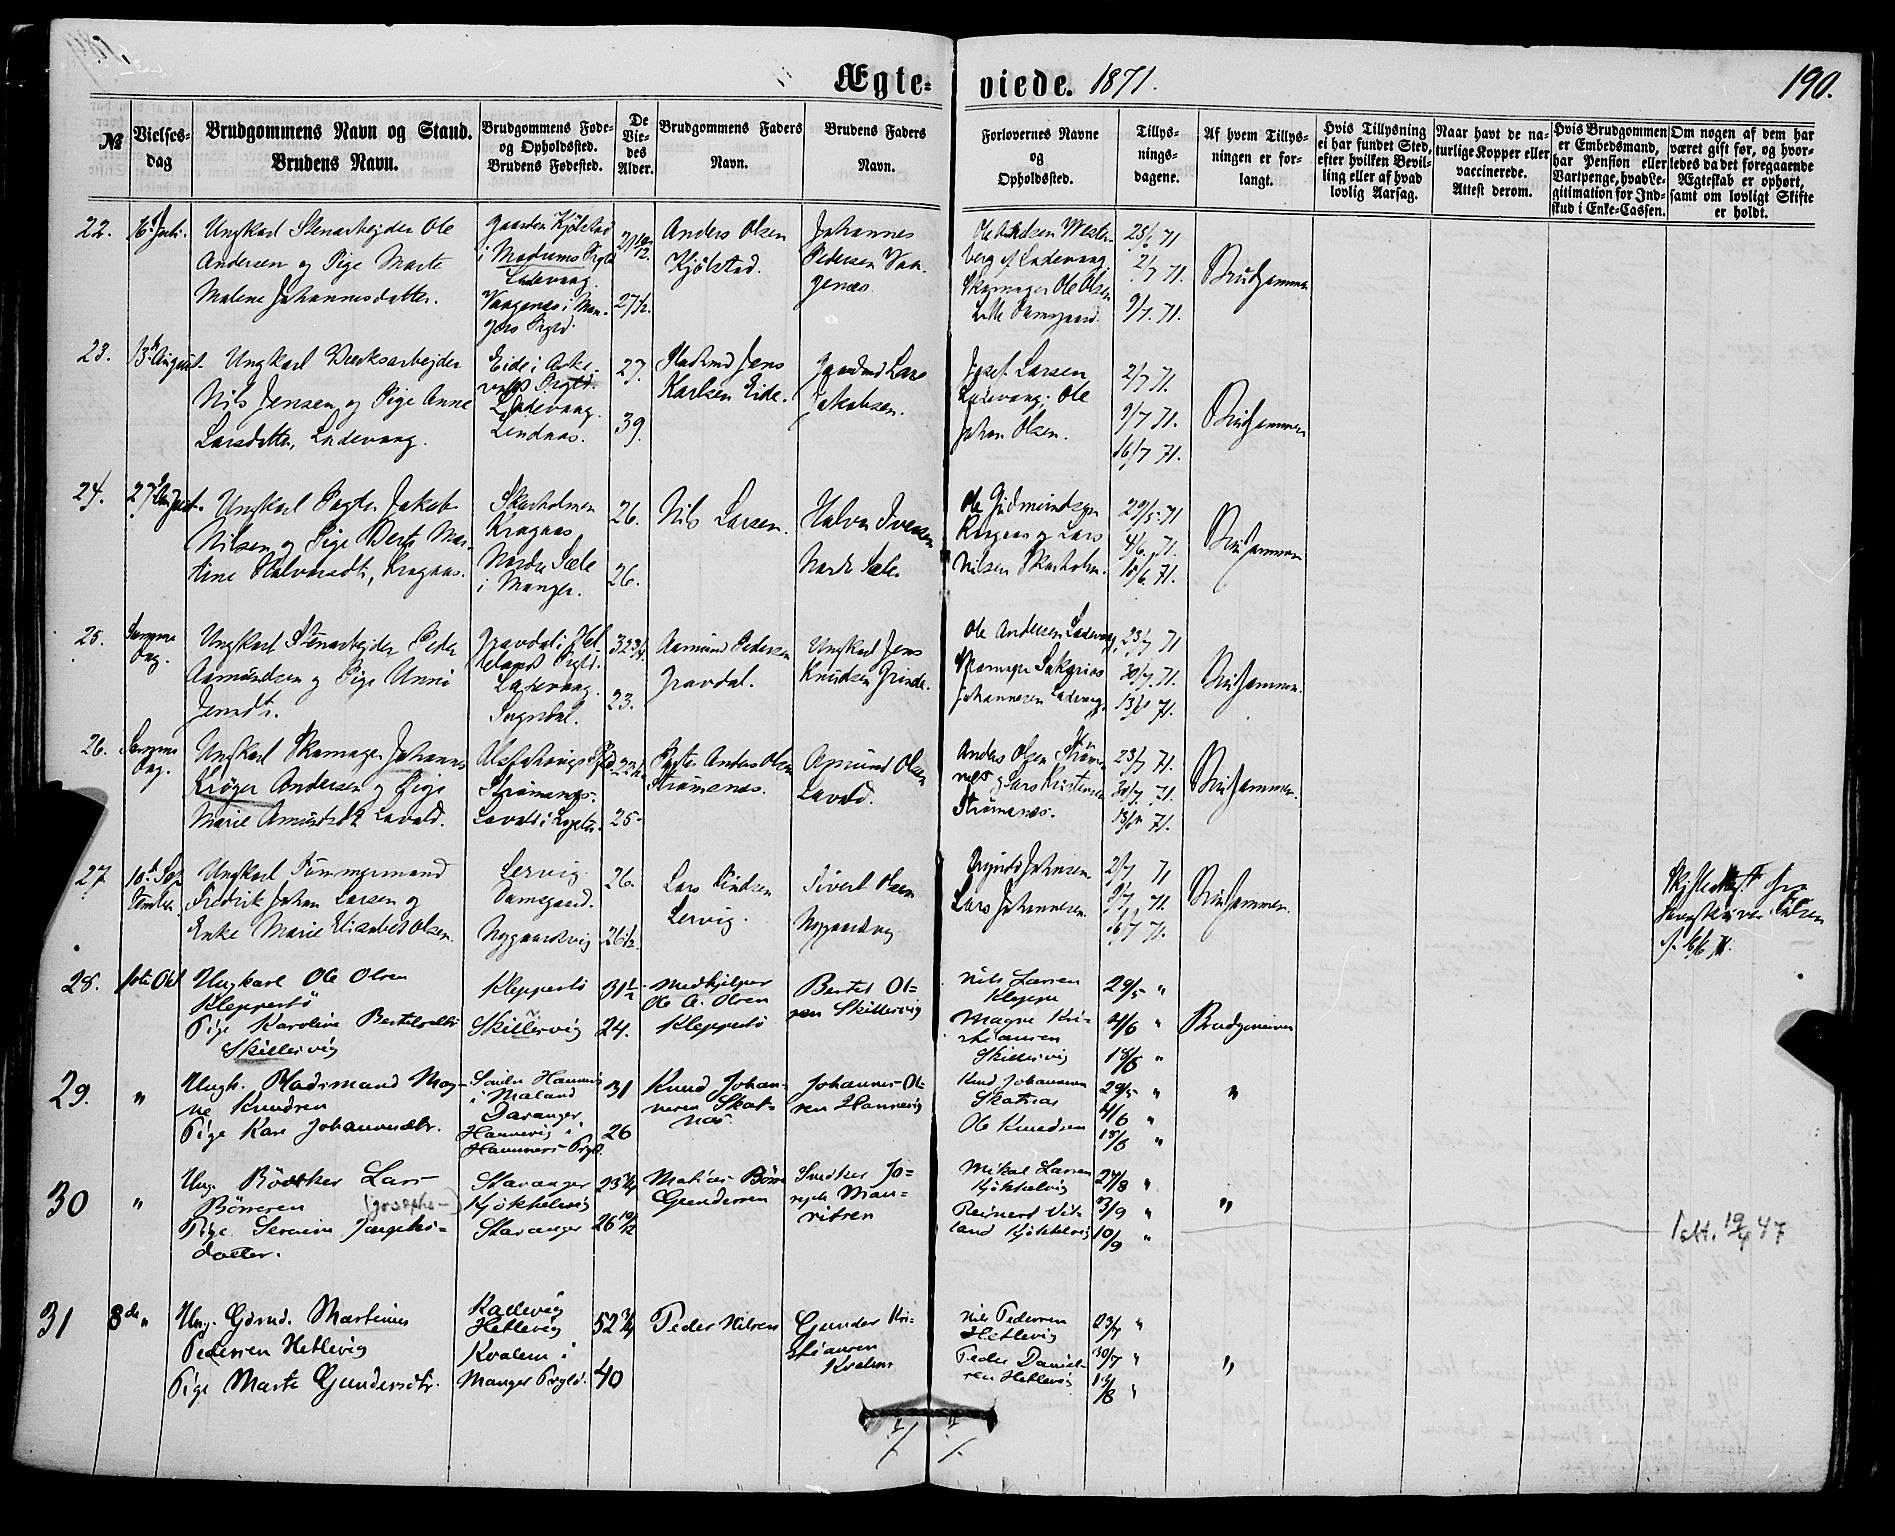 Ægte-viede. 1871.
190.
№
Vielses-dag
Brudgommens Navn og Stand.
Brudens Navn.
Brudgommens Føde-
og Opholdssted.
Brudens Fødested.
De
Vie-
des
Alder.
Brudgommens Faders
Navn.
Brudens Faders
Navn.
Forlovernes Navne
og
Opholdssted.
Tillys-
nings-
dagene.
Af hvem Tillys-
ningen er for-
langt.
Hvis Tillysning
ei har fundet Sted,
efter hvilken Bevil-
ling eller af hvad
lovlig Aarsag.
Naar havt de na-
turlige Kopper eller
vaccinerede.
Attest derom.
Hvis Brudgommen
er Embedsmand,
har Pension eller
Vartpenge, hvad Le-
gitimation for Ind-
skud i Enke-Cassen.
Om nogen af dem har
været gift før, og hvor-
ledes da det foregaaende
Ægteskab er ophørt,
samt om lovligt Skifte
er holdt.
22.
Ungkarl Stenarbejder Ole
Andersen og Pige Marte
Malene Johannesdatter.
Gaarden Kjølstad
i Modums Prgld
Ladevaag.
Vaagenæs i Man-
gers Prgld.
27½.
Anders Olsen
Kjølstad.
Johannes
Pedersen Vaa-
genæs.
Skomager Ole Olsen
Lille Damsgaard.
2/7 71.
9/7. 71.
Brudgommen
23.
13. August.
Ungkarl Værksarbejder
Nils Jensen og Pige Anne
Larsdatter, Ladevaag.
Eide i Aske-
volds Prgld.
Ladevaag.
Lindaas.
27.
39.
Jens
Karlsen Eide.
Gaardmd Lars
Jakobsen.
Josef Larsen
Ladevaag; Ole
Johan Olsen.
2/7 71.
9/7 71.
16/7 71.
Brudgommen
24.
27. August.
Ungkarl Jakob
Nilsen og Pige Berte Mar-
tine Halvorsdtr, Kragaas.
Skarholmen
Kragaas
Nordre Sæle
i Manger.
26.
26.
Nils Larsen.
Halvor Iversen
Nordre Sæle.
Ole Gudmundsen
Kragaas og Lars
Nilsen Skarholm.
29/5. 71
4/6. 71.
Brudgommen
25.
Samme
Dag.
Ungkarl Stenarbejder Peder
Aamundsen og Pige Unni
Jensdtr.
Gravdal i
Prgld.
Ladevaag.
Sogndal.
32¾.
23.
Aamund Pedersen
Gravdal.
Ungkarl Jens
Knudsen Grinde.
Ole Andersen Ladevaag,
Skomager Sakarias
Johannesen Ladevaag.
23/7 71
30/7. 71.
13/8 71.
Brudgommen.
26.
Samme
Dag.
Ungkarl Skomager Johannes
Krøger Andersen og Pige
Marie Amundsdtr Lavold.
Strømsnæs.
25
Anders Olsen
Strømsnæs.
Amund Olsen
Lavold.
Anders Olsen Strøms-
næs og Lars Kristensen
Strømsnæs.
23/7 71.
30/7. 71.
13/8 71.
Brudgommen.
27
10. Sep
tember.
Ungkarl Tømmermand
Fredrik Johan Larsen og
Enke Marie Elisabet Olsen.
Lervig.
Damsgaard.
Nygaardsvig
26.
26½.
Lars Knudsen
Lervig.
Sivert Olsen
Nygaardsvig
Johnsen.
Lars Johannesen.
2/7 71
9/7 71.
16/7 71.
Brudgommen.
Skifteattest fra
6/6 71.
28.
1ste Okt
Ungkarl Ole Olsen
Kleppestø
Pige Karoline Bertelsdtr
Skiftesvig
Kleppestø
Skiftesvig
31½
24.
Medhjelper
Ole A. Olsen
Kleppestø
Bertel Ol-
sen Skiftesvig
Nils Larsen
Kleppe
Magne Kri-
stiansen
Skiftesvig
29/5 "
4/6 "
18/6 "
Brudgommen
29.
"
Ungk. Pladsmand Mog-
ne Knudsen
Pige Kari Johannesdtr.
Søndre Hannes
i Maland
Davanger
Hannevig i
Hammers Prgld.
31
26
Knud Johan-
nesen Skot-
næs
Johannes Ol-
sen Hannevig
Knud Johannesen
Skotnæs
Ole Knudsen
29/5 "
4/6 "
18/6 "
"
30
"
Ung. Bødtker Lars
Børresen (Josephs—)
Pige Serine Josephs-
datter.
Stavanger
Kjøkkelvig
Stavanger
23¾
26 10/12
Matias Børre
Gundersen
Snedker Jo-
seph Mau-
ritsen
Mikal Larsen
Kjøkkelvig
Reinert Vit-
land Kjøkkelvig
27/8 "
3/9 "
10/9 "
"
1 att. 19/4 47
31
8de "
Ung. Gårmd. Martinus
Pedersen Hetlevig
Pige Marte Gundersdtr.
Radevig
Hetlevig
Kvalen i
Manger Prgld.
52¾
40
Peder Nilsen
Gunder Kri-
stiansen
Kvalen
Nils Pedersen
Hetlevig
Peder Daniel-
sen Hetlevig
23/7 "
30/7 "
13/8 "
"